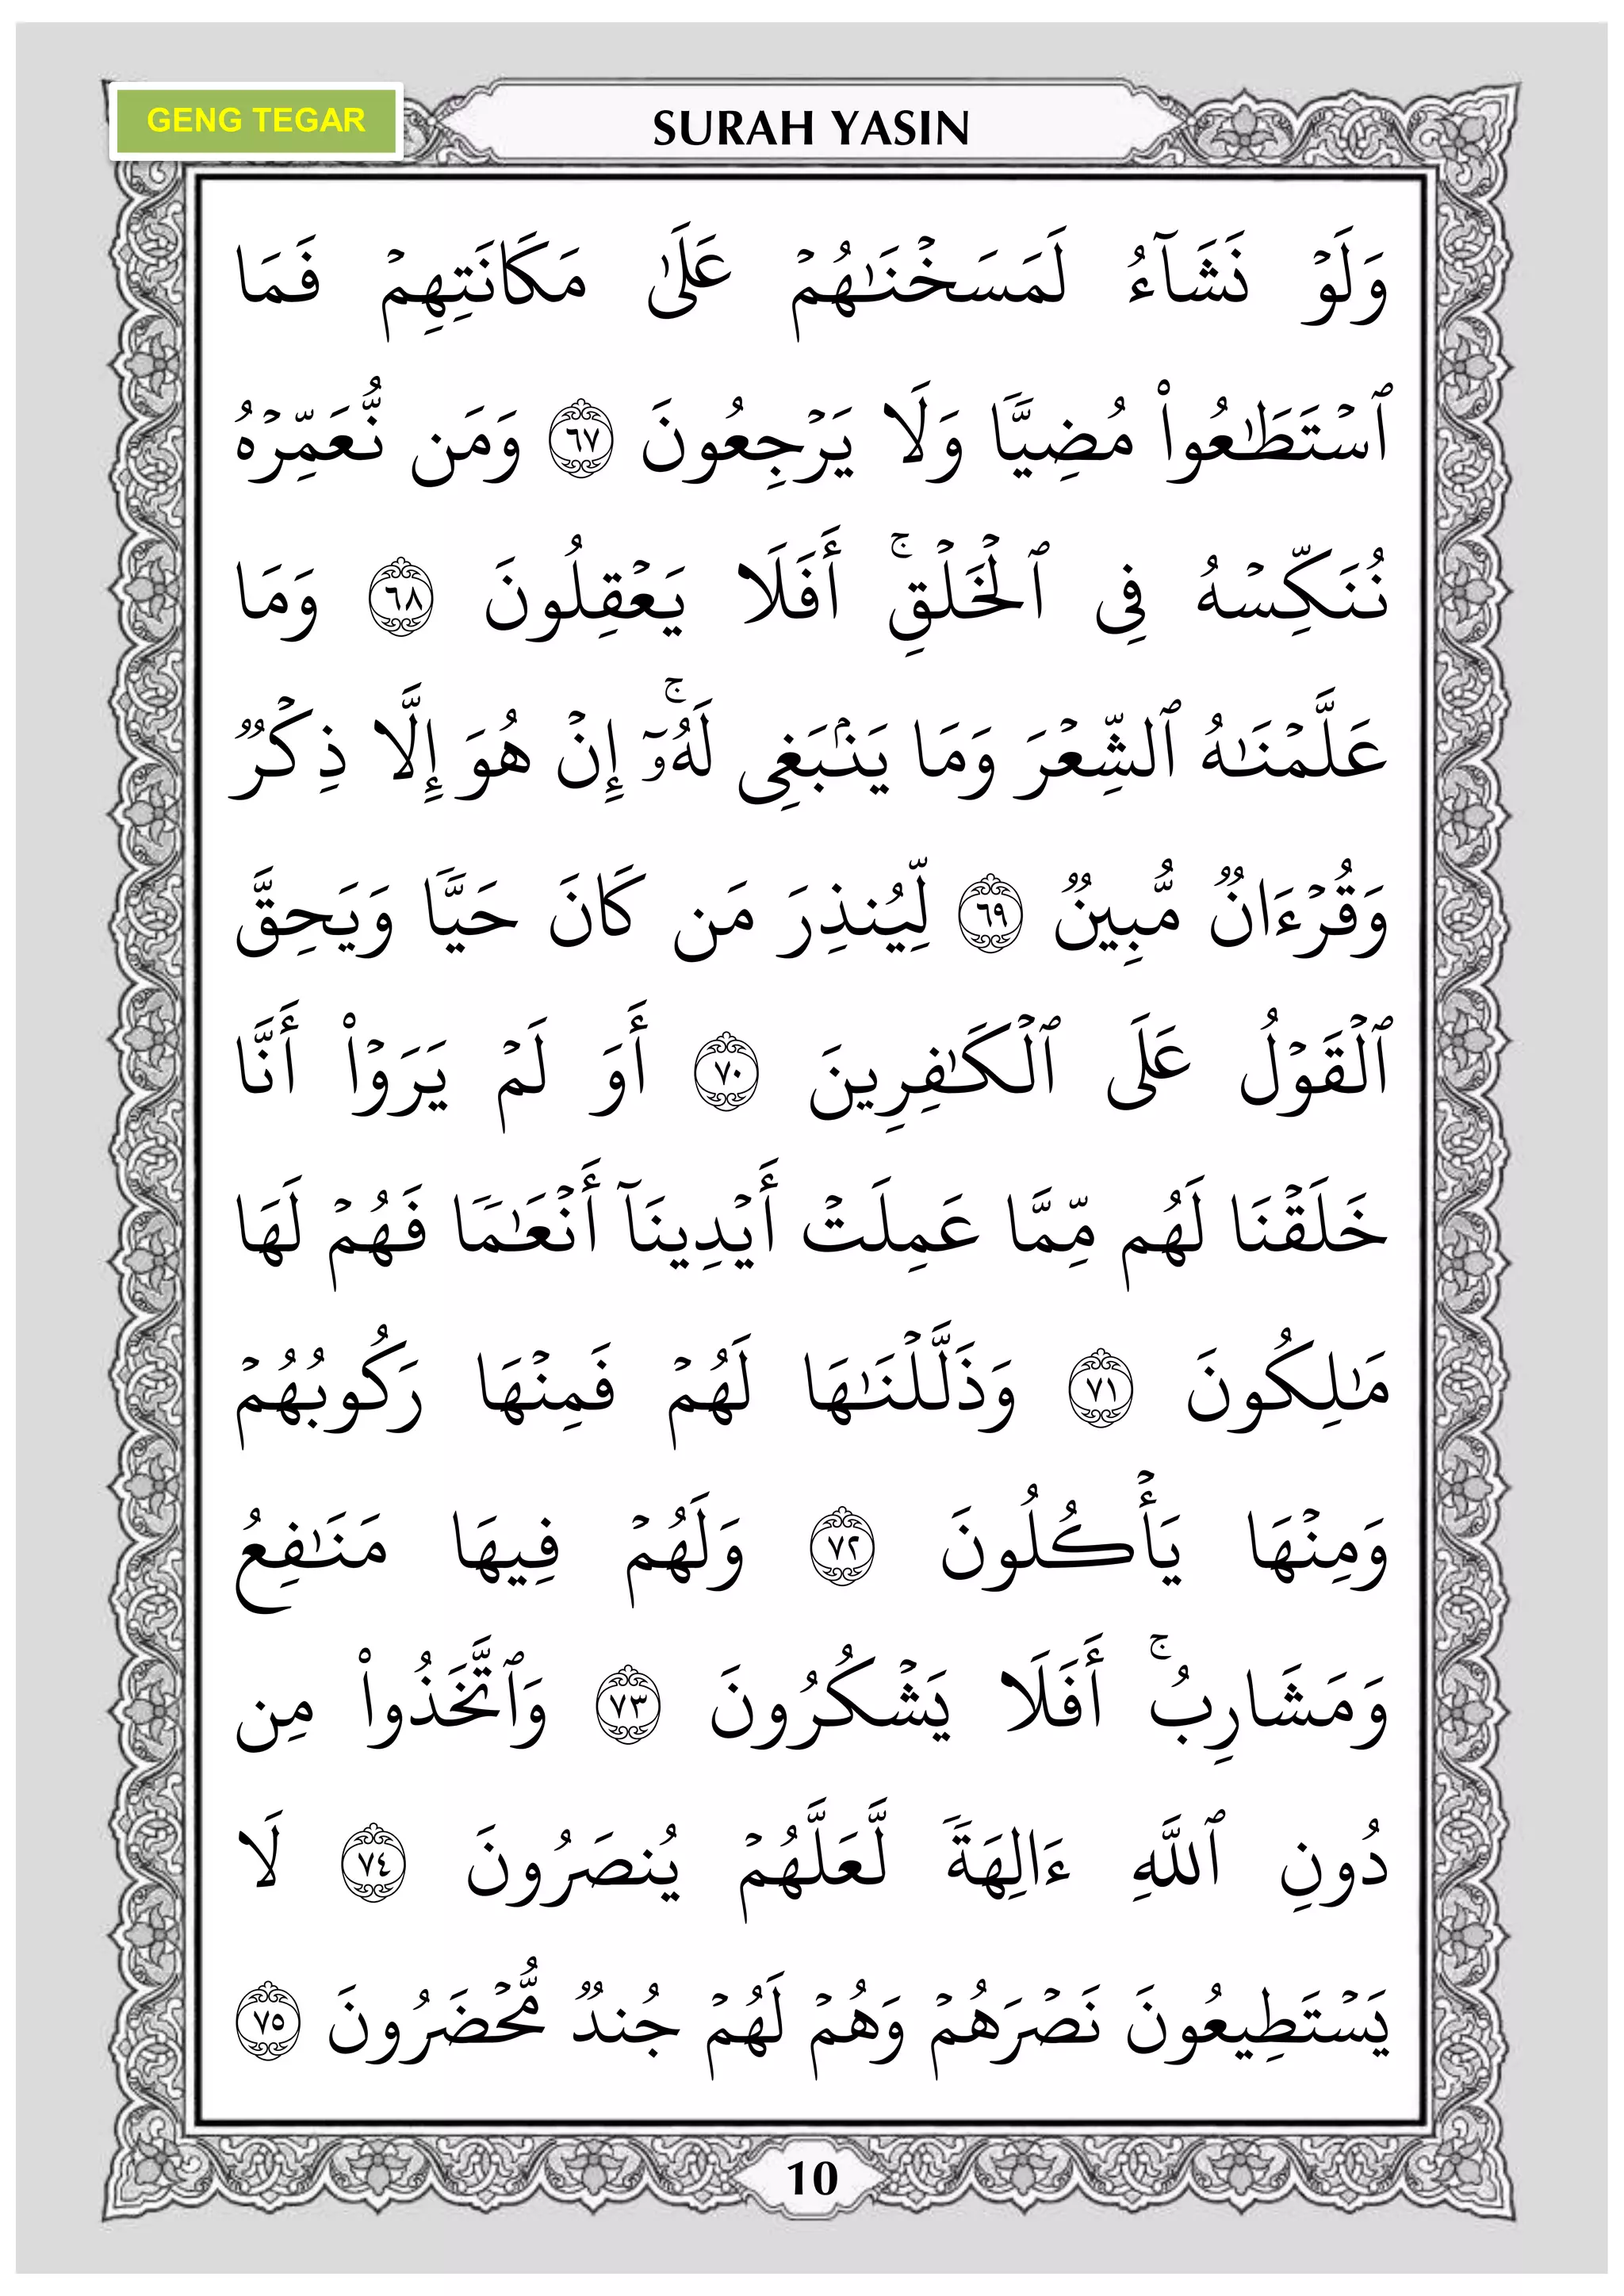 GENG TEGAR
SURAH YASIN
وَلَوۡ نَشَآءُ لَمَسَخۡنَٰهُمۡ عَلَىٰ مَكَانَتِهِمۡ فَمَا
ٱسۡتَطَٰعُواْ مُضِيّٗا وَلَا يَرۡجِعُونَ ٦٧ وَمَن نُّعَمِّرۡهُ
نُنَكِّسۡهُ فِي ٱلۡخَلۡقِۚ أَفَلَا يَعۡقِلُونَ ٦٨ وَمَا
عَلَّمۡنَٰهُ ٱلشِّعۡرَ وَمَا يَنۢبَغِي لَهُۥٓۚ إِنۡ هُوَ إِلَّا ذِكۡرٞ
وَقُرۡءَانٞ مُّبِينٞ ٦٩ لِّيُنذِرَ مَن كَانَ حَيّٗا وَيَحِقَّ
ٱلۡقَوۡلُ عَلَى ٱلۡكَٰفِرِينَ ٧٠ أَوَ لَمۡ يَرَوۡاْ أَنَّا
خَلَقۡنَا لَهُم مِّمَّا عَمِلَتۡ أَيۡدِينَآ أَنۡعَٰمٗا فَهُمۡ لَهَا
مَٰلِكُونَ ٧١ وَذَلَّلۡنَٰهَا لَهُمۡ فَمِنۡهَا رَكُوبُهُمۡ
وَمِنۡهَا يَأۡكُلُونَ ٧٢ وَلَهُمۡ فِيهَا مَنَٰفِعُ
وَمَشَارِبُۚ أَفَلَا يَشۡكُرُونَ ٧٣ وَٱتَّخَذُواْ مِن
دُونِ ٱللَّهِ ءَالِهَةٗ لَّعَلَّهُمۡ يُنصَرُونَ ٧٤ لَا
يَسۡتَطِيعُونَ نَصۡرَهُمۡ وَهُمۡ لَهُمۡ جُندٞ مُّحۡضَرُونَ ٧٥
10